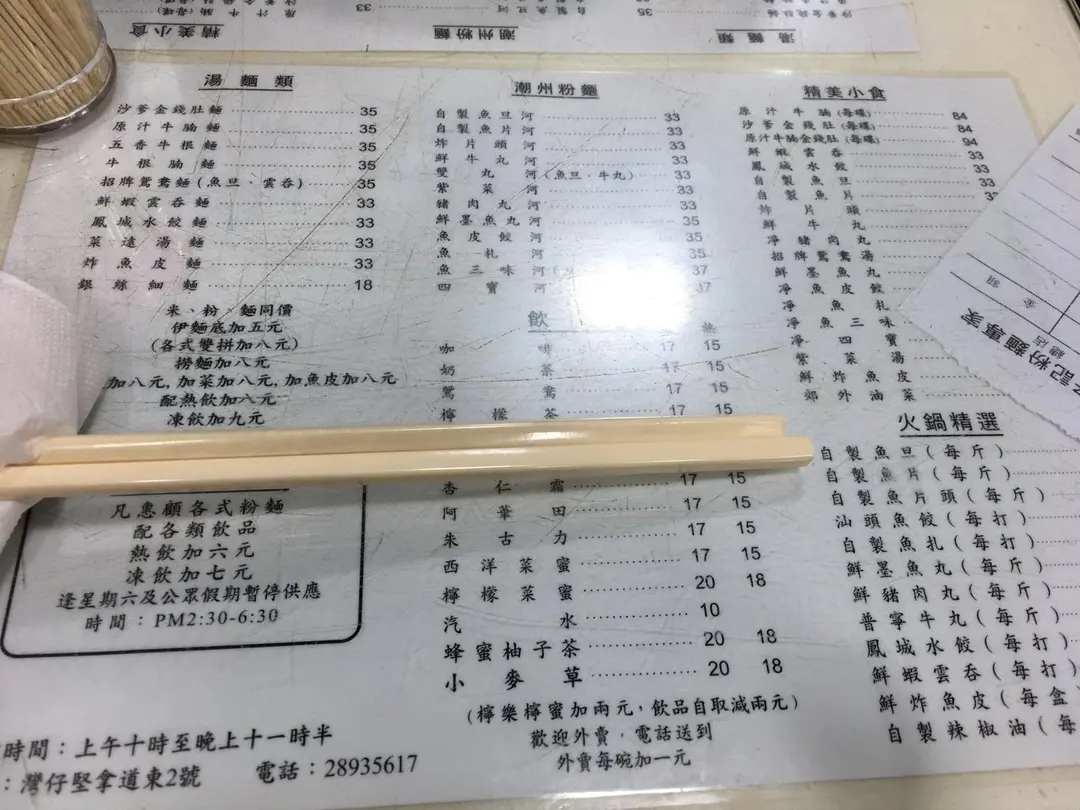 精美小食
潮州粉麵
湯麵類
湯麵類
沙爹金錢肚麵 35
原汁牛腩麵 35
五香牛根麵 35
牛根腩麵 35
招牌鴛鴦麵(魚旦、雲吞) 35
鮮蝦雲吞麵 33
鳳城水餃麵 33
菜遠湯麵 33
炸魚皮麵 33
銀絲細麵 18
米、粉、麵同價
伊麵底加五元
(各式雙拼加八元)
撈麵加八元
加八元,加菜加八元,加魚皮加八元
配熱飲加八元
凍飲加九元
凡惠顧各式粉麵
配各類飲品
熱飲加六元
凍飲加七元
逢星期六及公眾假期暫停供應
時間：PM2:30-6:30
時間：上午十時至晚上十一時半
：灣仔堅拿道東2號 電話：28935617
潮州粉麵
自製魚旦河 33
自製魚片河 33
炸片頭河 33
鮮牛丸河 33
雙丸河(魚旦、牛丸) 33
紫菜河 33
豬肉丸河 33
鮮墨魚丸河 35
魚皮餃河 35
魚札河 35
魚三味河 37
四寶河 37
飲
熱
咖啡 17 15
奶茶 17 15
鴛鴦 17 15
檸檬茶 17 15
杏仁霜 17 15
阿華田 17 15
朱古力 17 15
西洋菜蜜 17 15
檸檬菜蜜 20 18
汽水 10
蜂蜜柚子茶 20 18
小麥草 20 18
(檸樂檸蜜加兩元，飲品自取減兩元)
歡迎外賣，電話送到
外賣每碗加一元
精美小食
原汁牛腩(每碟) 84
沙爹金錢肚(每碟) 84
原汁牛腩金錢肚(每碟) 94
鮮蝦雲吞 33
鳳城水餃 33
自製魚旦 33
自製魚片
炸片頭
鮮牛丸
淨豬肉丸
招牌鴛鴦湯
鮮墨魚丸
淨魚皮餃
淨魚札
淨魚三味
淨四寶
紫菜湯
鮮炸魚皮
郊外油菜
火鍋精選
自製魚旦(每斤)
自製魚片(每斤)
自製魚片頭(每斤)
汕頭魚餃(每打)
自製魚札(每打)
鮮墨魚丸(每斤)
鮮豬肉丸(每斤)
普寧牛丸(每斤)
鳳城水餃(每打)
鮮蝦雲吞(每打)
鮮炸魚皮(每盒
自製辣椒油(每
記粉麵專家